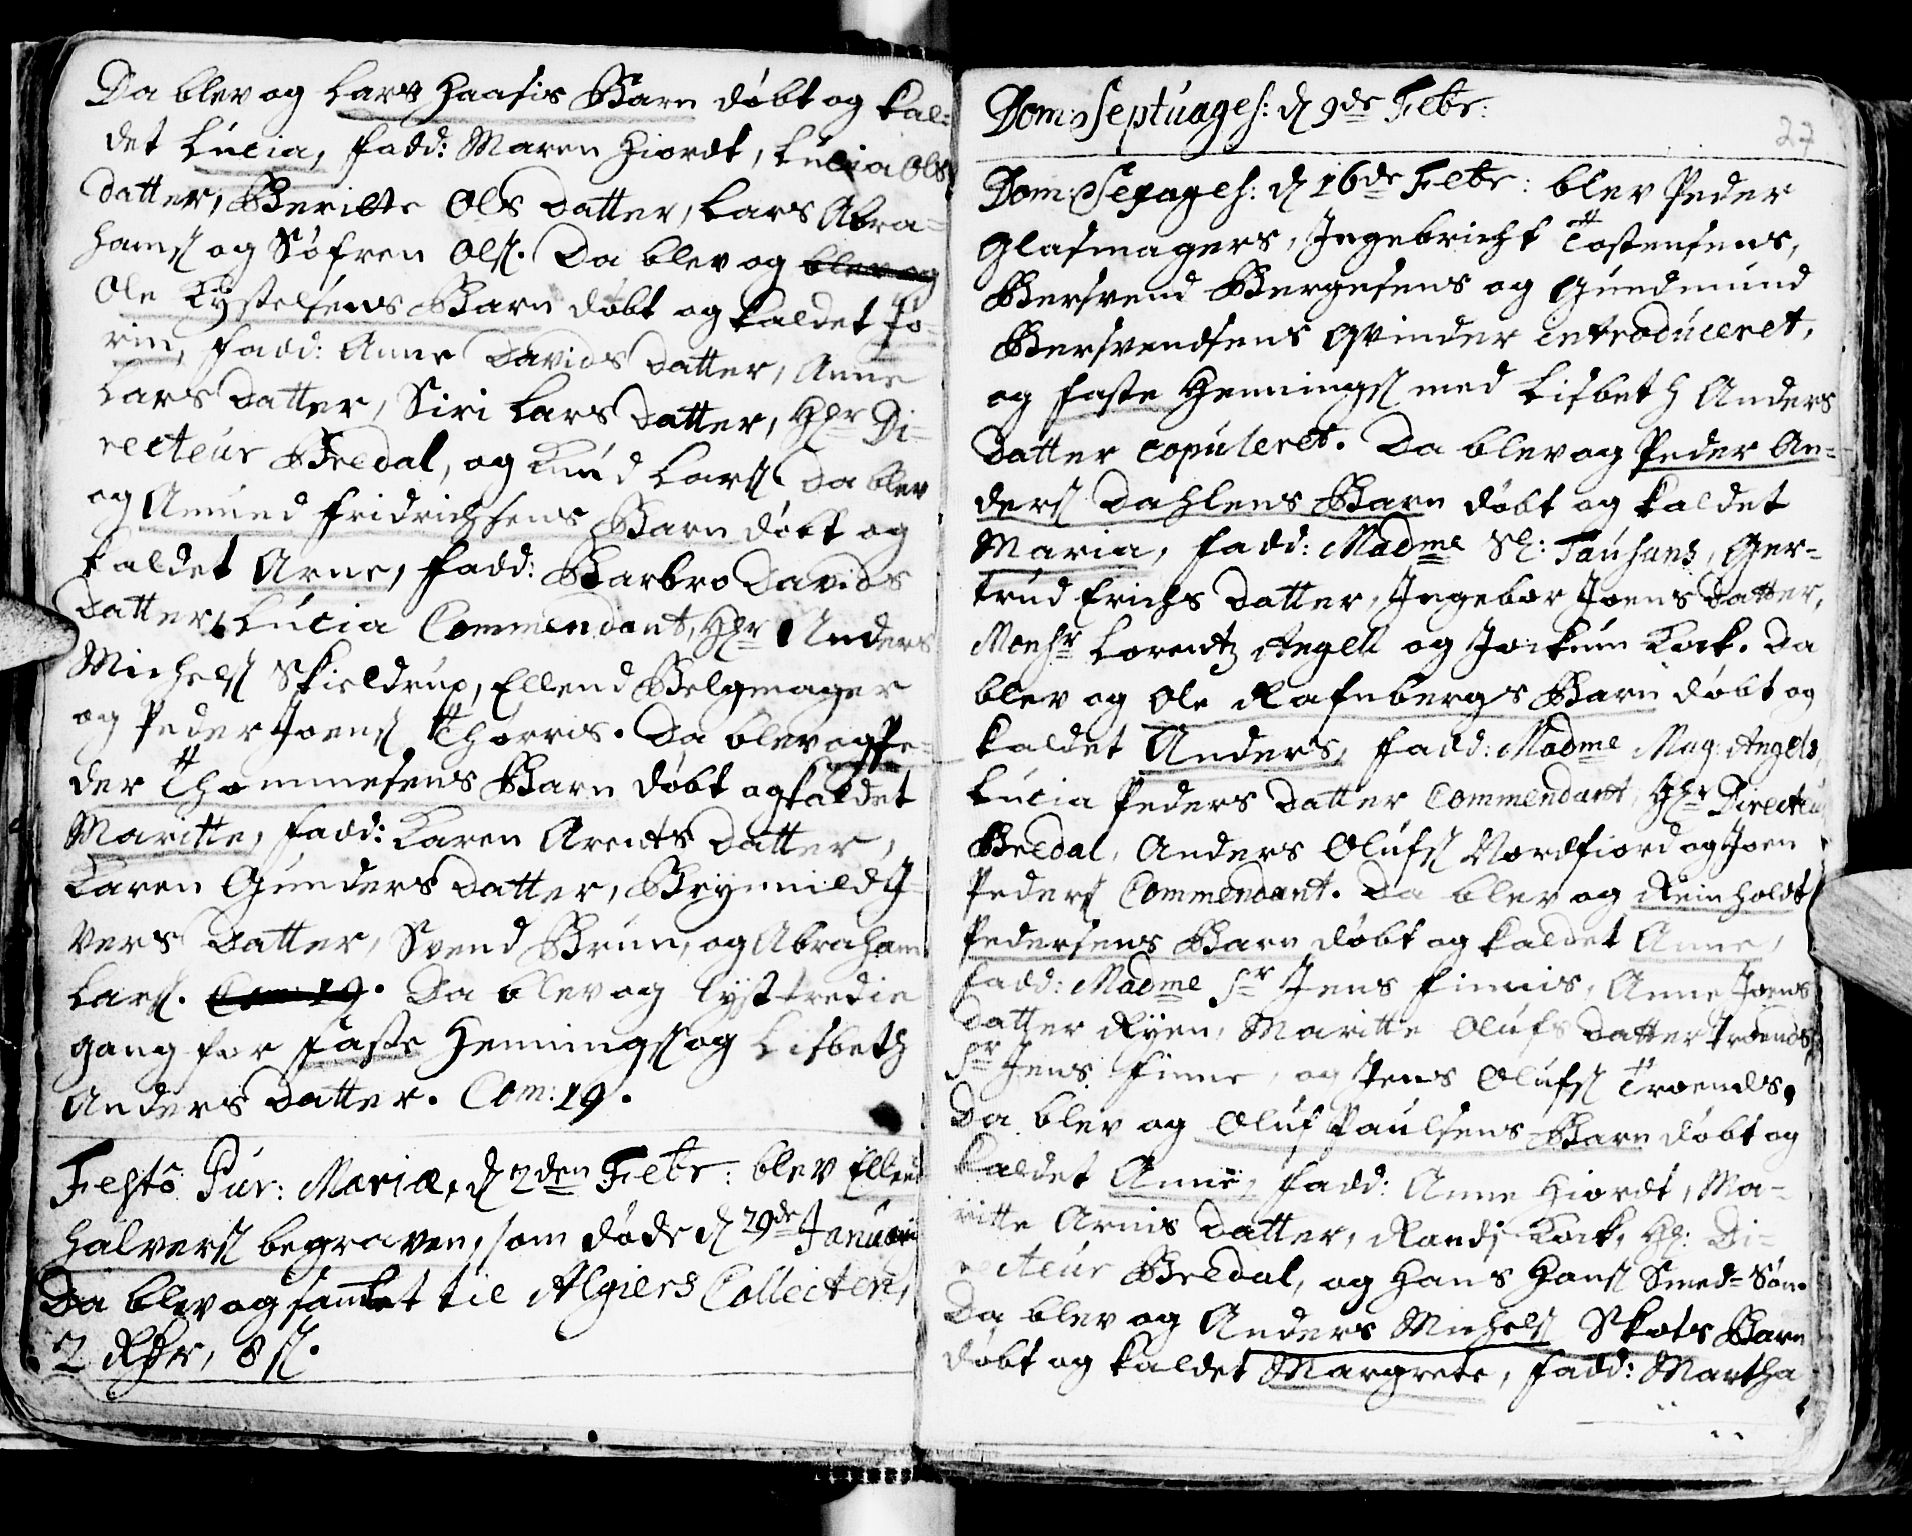 Da blev og Lars Haasis Barn døbt og kal=
det Lucia, fadd: Maren Hiordt, Lucia Ols
datter, Beritte Ols datter, Lars Abra=
hams. og Søfren Ols. Da blev og blev og
Ole Kystelsens Barn døbt og kaldet Jo=
rin, fadd: Anne Davids datter, Anne
Lars datter, Siri Lars datter, Hr Di=
recteur Bredal, og Knud Lars. Da blev
og Amund Fridrichsens Barn døbt og
kaldet Arne, fadd: Barbro Davids
datter, Lucia Commendant, Hr Anders
Michels. Skieldrup, Ellend Belgmager
og Peder Joens. Thorris. Da blev og Pe=
der Thommesens Barn døbt og kaldet
Maritte, fadd: Karen Arents datter,
Karen Gunders datter, Brynnild I=
vers datter, Svend Brun, og Abraham
Lars. Com: 19. Da blev og lyst tredie
gang for Faste Hennings. og Lisbeth
Anders datter. Com: 19.
Festô Pur: Mariæ, d. 2den Febr: blev Ellend
Halvers. begraven, som døde d. 29de Januari
Da blev og samlet til Algiers Collecten,
2 Rdr, 8 s.
27
Dom: Septuages: d. 9de Febr:
Dom: Sexages: d. 16de Febr: blev Peder
Glasmagers, Ingebricht Tostensens,
Bersvend Bergesens og Gundmund
Bersvendsens Qvinder introduceret,
og Faste Hennings. med Lisbeth Anders
datter copuleret. Da blev og Peder An=
ders. Dahlens Barn døbt og kaldet
Maria, fadd: Madme Sl: Tausans, Ger=
trud Erichs datter, Ingebor Joens datter,
Monsr Lorentz Angell og Jockum Kock. Da
blev og Ole Rafnbergs Barn døbt og
kaldet Anders, fadd: Madme Mag: Angels,
Lucia Peders datter Commendant, Hr Directeur
Bredal, Anders Olufs. Nordfiord og Joen
Peders. Commendant. Da blev og Reinholdt
Pedersens Barn døbt og kaldet Anne,
fadd: Madme Sr Jens Finnis, Anne Joens
datter Ryen, Maritte Olufs datter Troends,
Sr Jens Finne, og Jens Olufs. Troends.
Da blev og Oluf Paulsens Barn døbt og
kaldet Anne, fadd: Anne Hiordt, Ma=
ritte Arnis datter, Randj Kock, Hr: Di=
recteur Bredal, og Hans Hans. Smed=Søn.
Da blev og Anders Michels. Skots Barn
døbt og kaldet Margrete, fadd: Martha